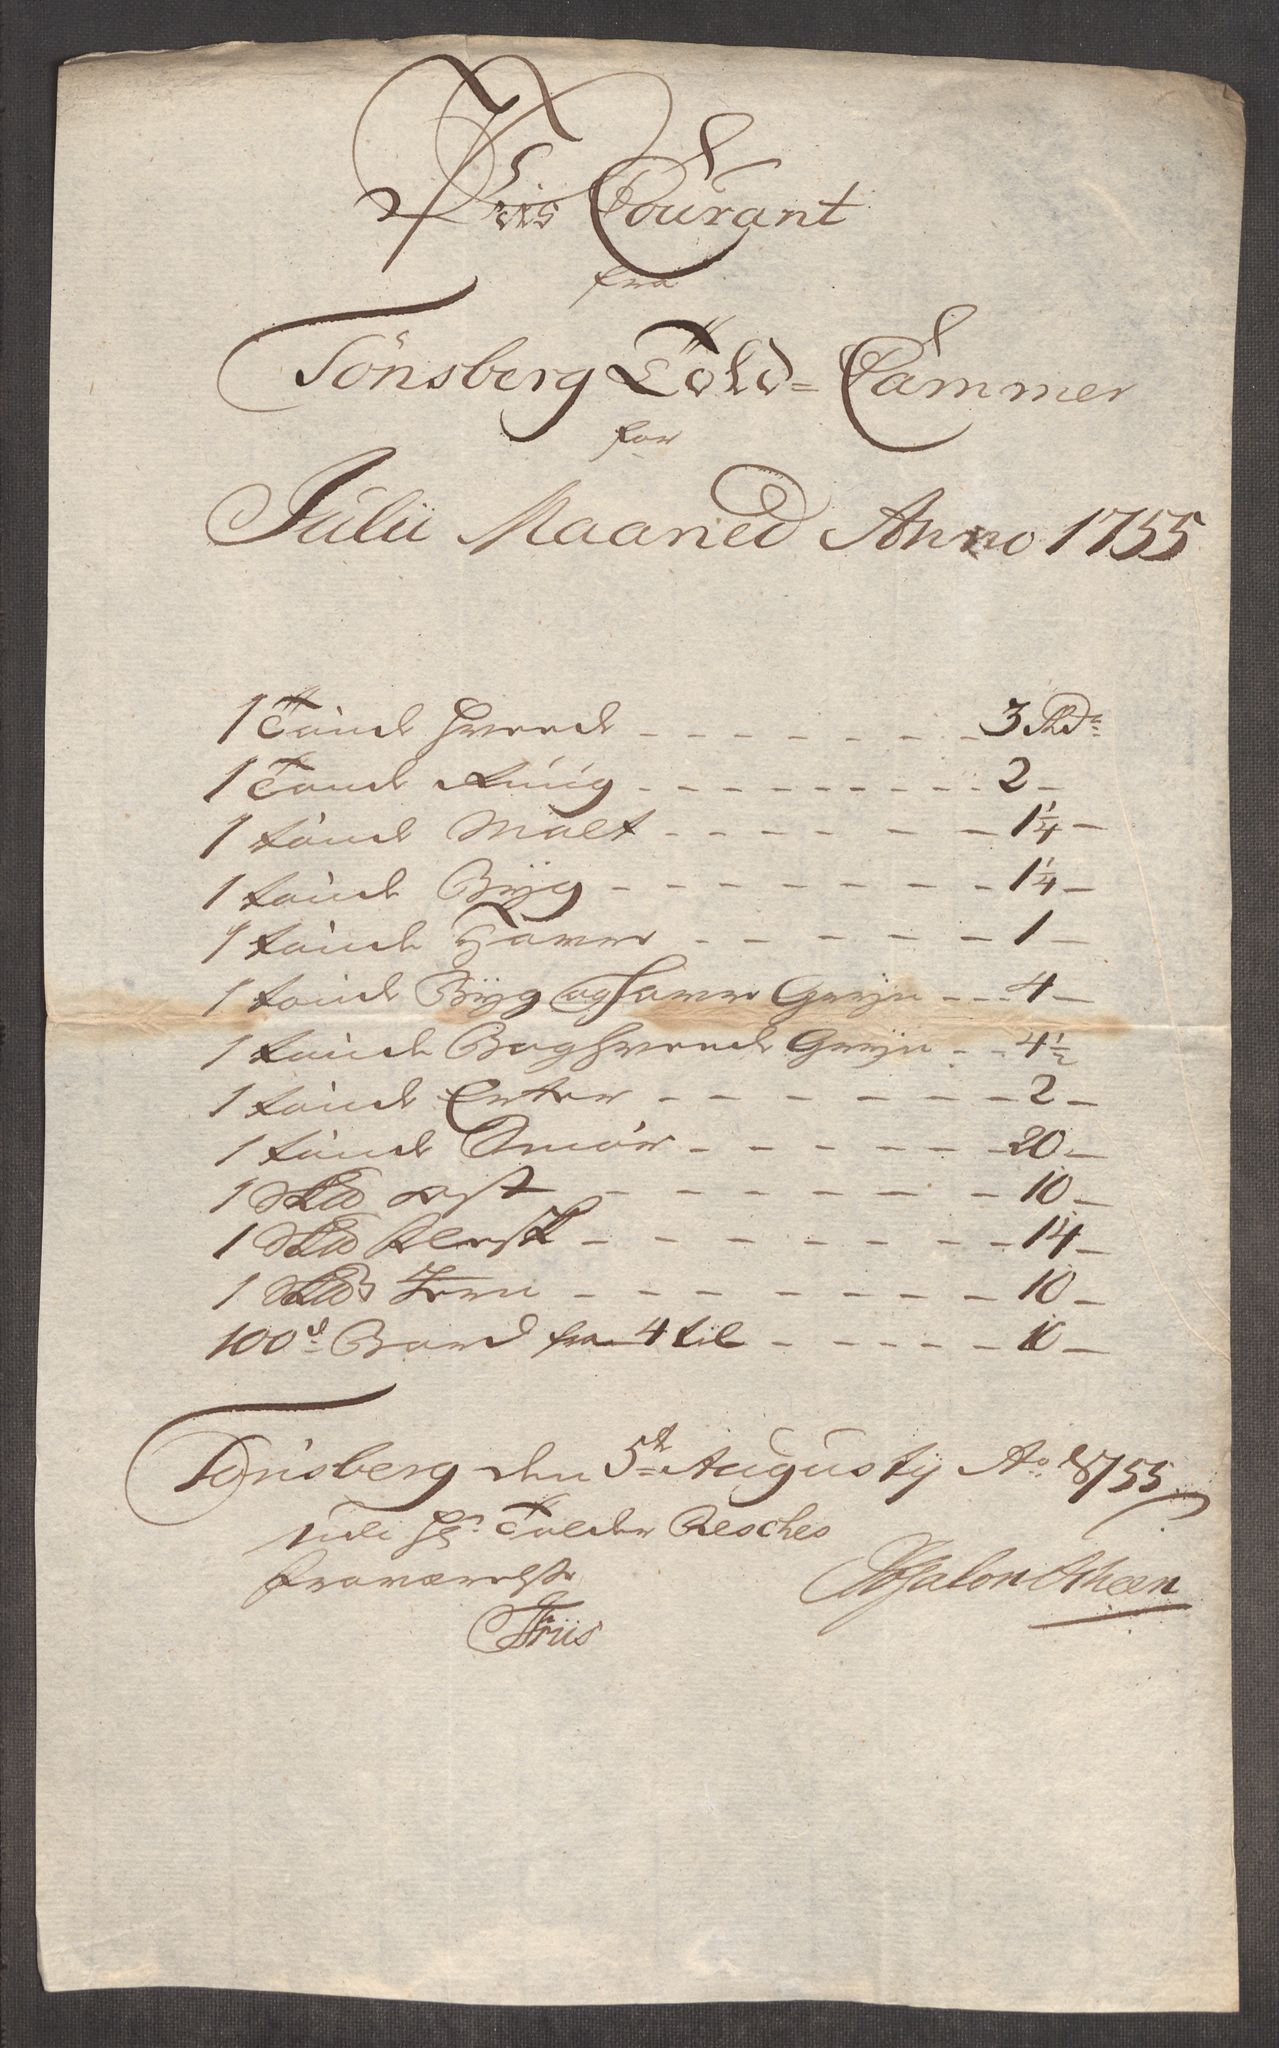 Priis Courant
fra
Tönsberg Told=Cammer
for
Julii Maaned Anno 1755
1 Tönde Hvede - - - - - - - 3 Rdr
1 Tönde Rüug - - - - - - - - - 2 -
1 tönde Malt - - - - - - 1 1/4 -
1 tönde Byg - - - - - - - 1 1/4 -
1 tönde Havre - - - - - 1 -
1 tönde Byg og Havre Gryn - - - 4 -
1 tönde Boghvede Gryn - - 4 1/2
1 tönde Erter - - - - - - - 2 -
1 tönde Smör - - - - - - 20 -
1 Skd ost - - - - - - - 10 -
1 Skd Flesk - - - - - - - - 14 -
1 Skd Jern - - - - - - - - 10 -
100d Bord fra 4 til - - - - - 10 -
Tönsberg den 5te Augustij Ao 1755
udi Hr Tolder Resches
fraværelse
Friis
Absalon Scheen